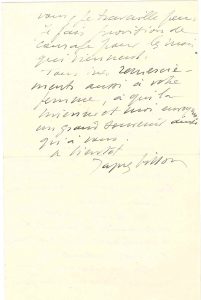 vous, je travaille pour
je fais provision de
courage pour les mois
qui viennent.
Tous mes remercie-
ments aussi à votre
femme, à qui la
mienne et moi
un grand souvenir
qu'à vous.
a bientot
Jacques Villon